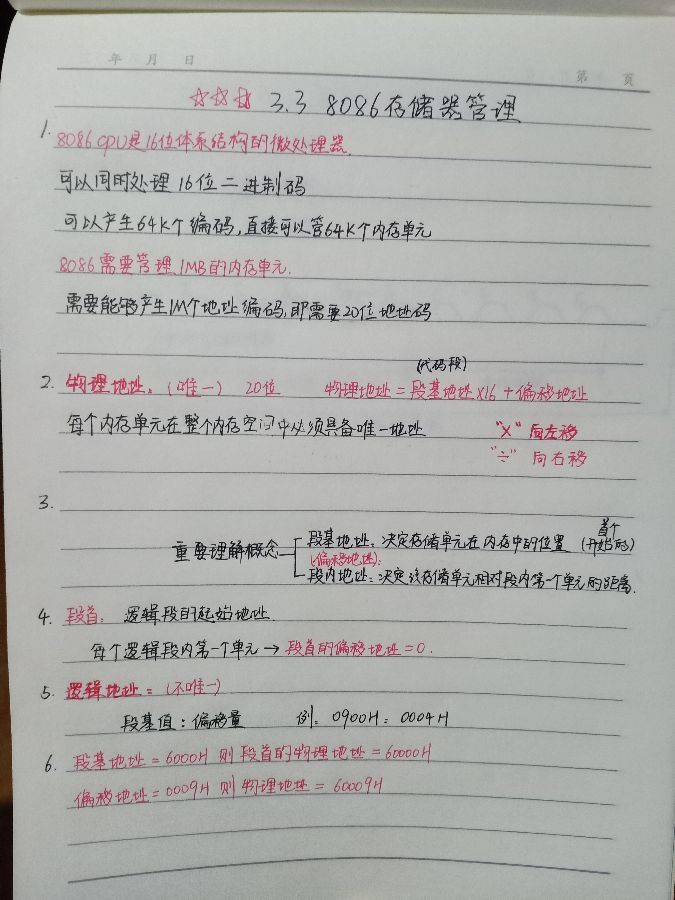 年 月 日
第 页
☆☆☆ 3.3 8086存储器管理
1. 8086 CPU是16位体系结构的微处理器.
可以同时处理16位二进制码
可以产生64K个编码,直接可以管64K个内存单元
8086需要管理1MB的内存单元.
需要能够产生1M个地址编码,即需要20位地址码
(代码段)
2. 物理地址:(唯一) 20位 物理地址=段基地址×16+偏移地址
每个内存单元在整个内存空间中必须具备唯一地址 "×" 向左移
"÷" 向右移
3.
首个
重要理解概念 段基地址:决定存储单元在内存中的位置 (开始的)
(偏移地址):
段内地址:决定该存储单元相对段内第一个单元的距离.
4. 段首: 逻辑段的起始地址.
每个逻辑段内第一个单元→段首的偏移地址=0.
5. 逻辑地址:(不唯一)
段基值:偏移量 例: 0900H:0004H
6. 段基地址=6000H 则段首的物理地址=60000H
偏移地址=0009H 则物理地址=60009H